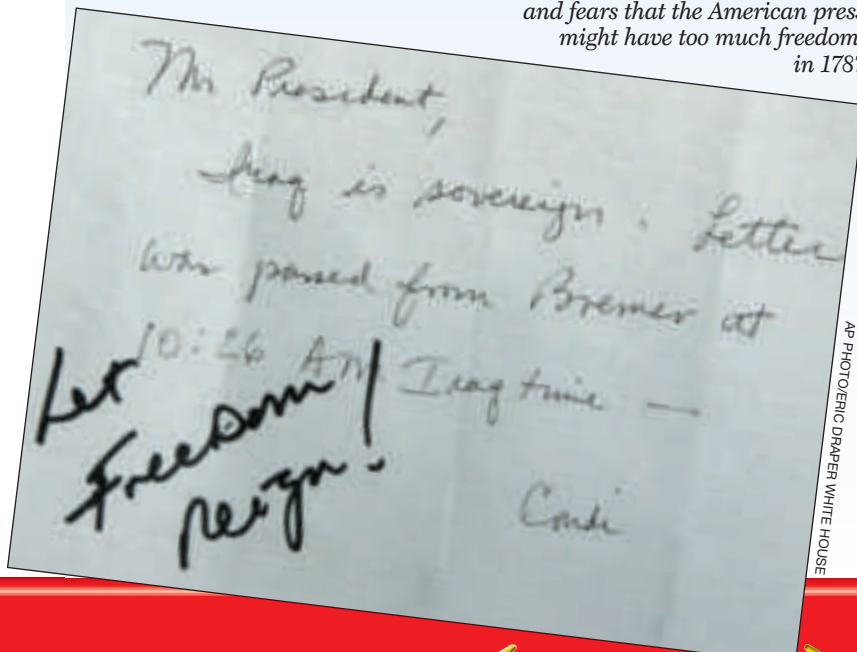 and fears that the American press
might have too much freedom
in 178
Mr President,
Iraq is sovereign. Letter
was passed from Bremer at
10:26 AM Iraq time —
Condi
Let
Freedom
reign!
AP PHOTO/ERIC DRAPER WHITE HOUSE